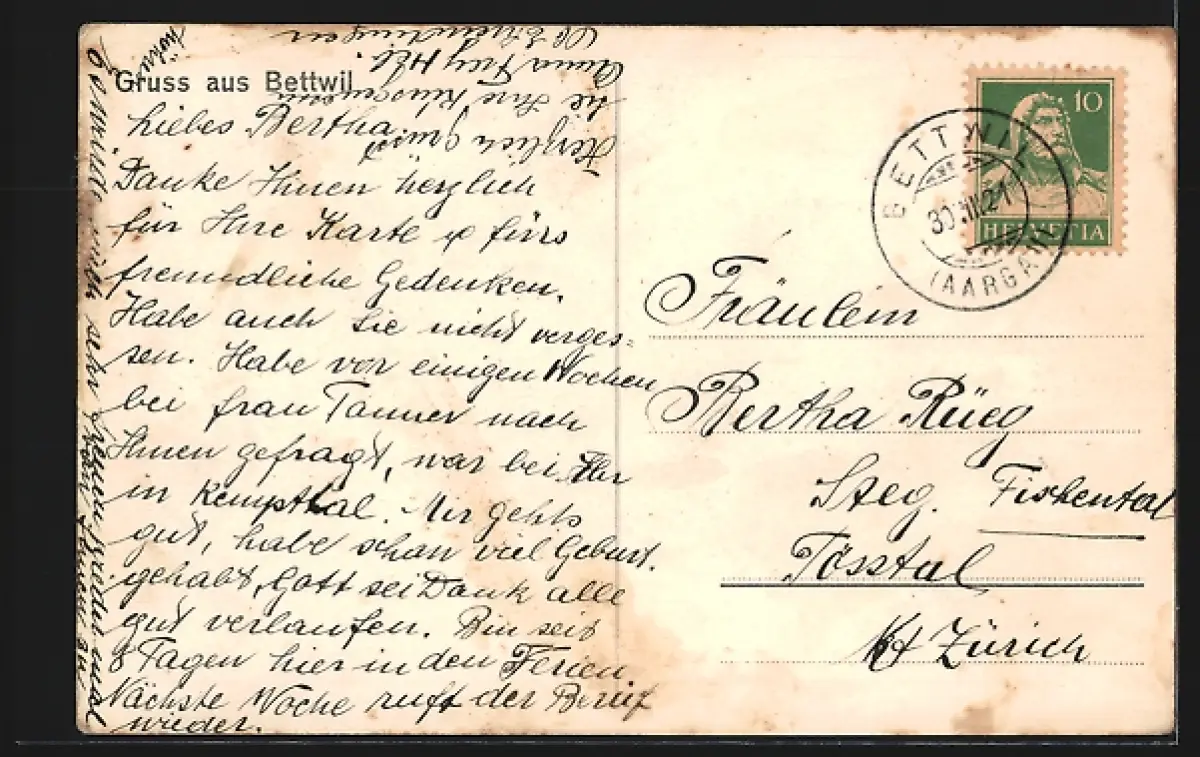 Gruss aus Bettwil
Liebes Bertha
Danke Ihnen herzlich
für Ihre Karte & fürs
freundliche Gedenken.
Habe auch Sie nicht verges=
sen. Habe vor einigen Wochen
bei Frau Tanner nach
Ihnen gefragt, war bei Ihr
in Kempthal. Mir gehts
gut, habe schon viel Geburt.
gehabt, Gott sei Dank alle
gut verlaufen. Bin seit
8 Tagen hier in den Ferien
Nächste Woche ruft der Beruf
wieder.
Herzlich grüsst
Sie Ihre
Anna Frey Heb.
BETTWIL
(AARGAU)
10
HELVETIA
Fräulein
Bertha Rüeg
Steg. Fischental
Tösstal
Kt Zürich